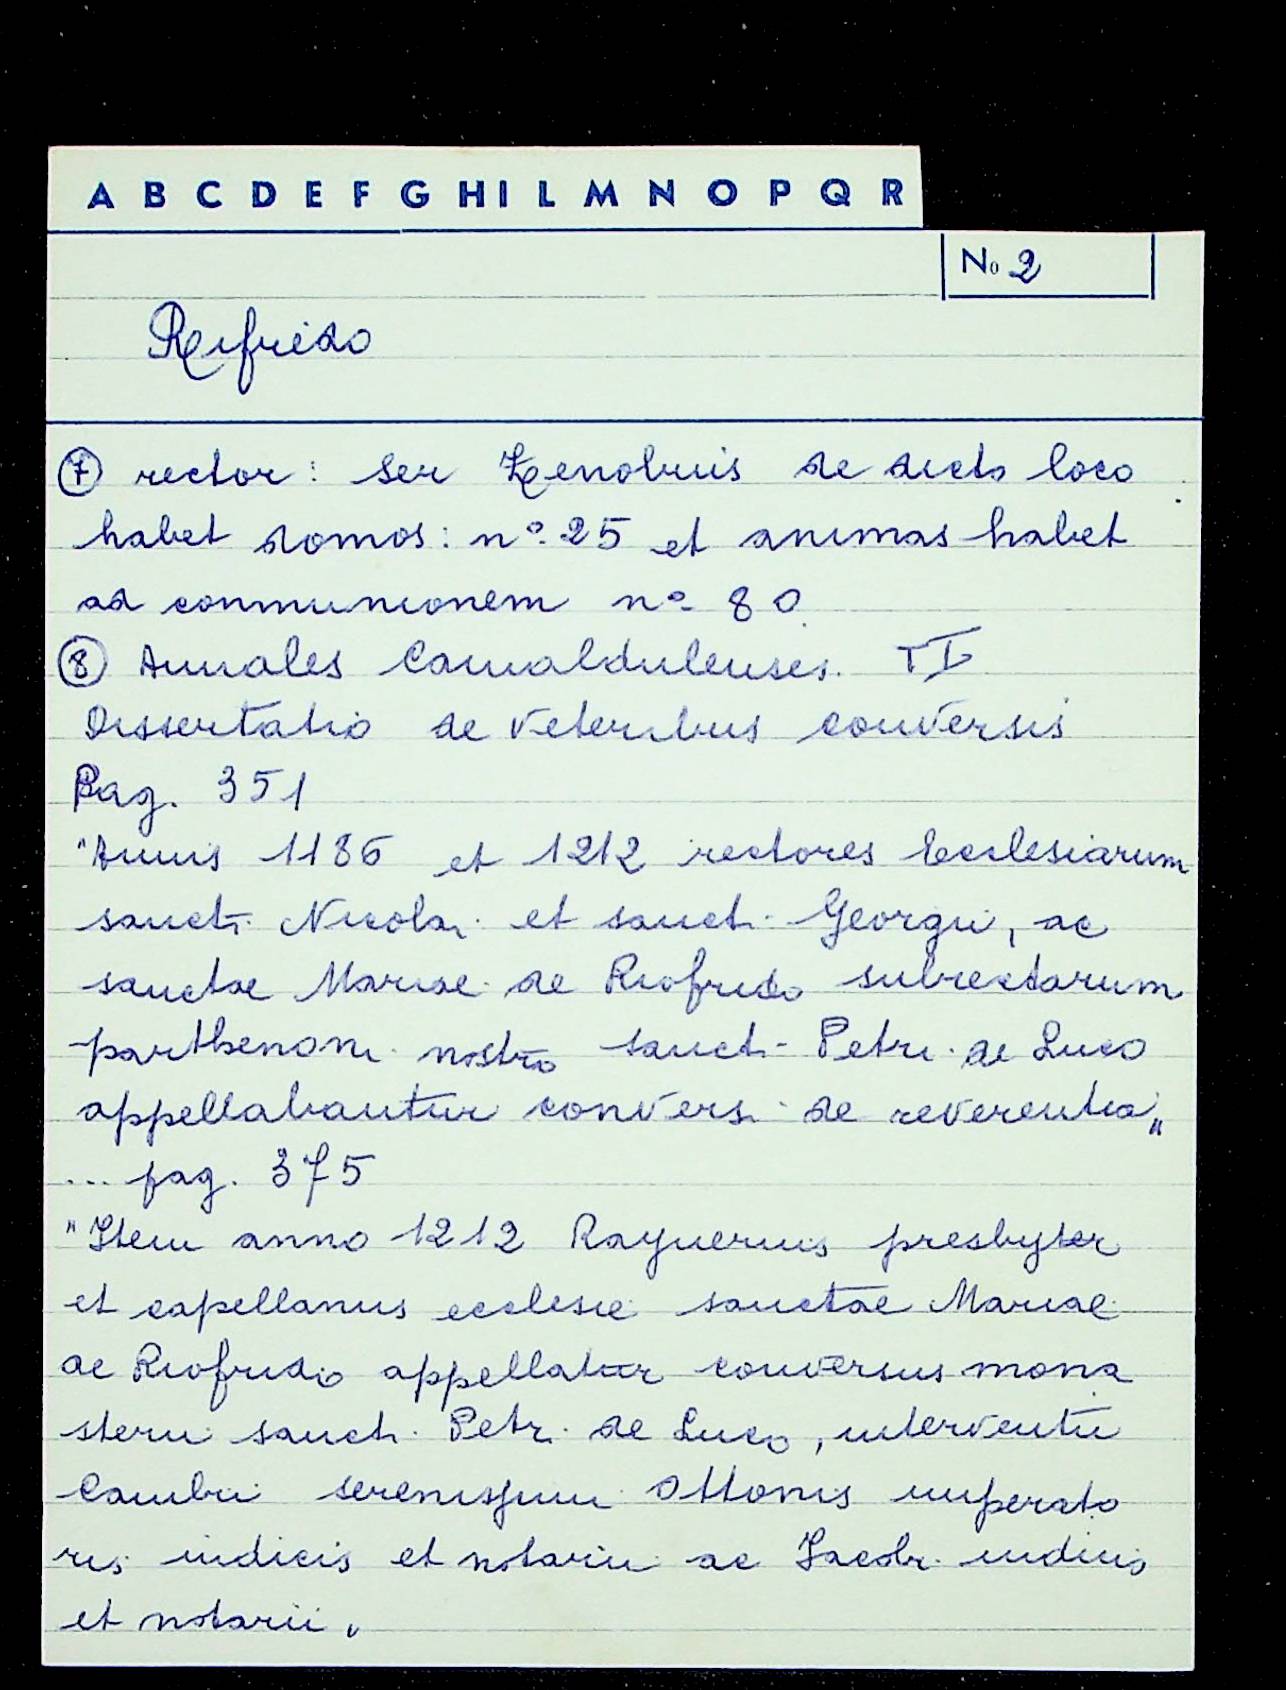 A B C D E F G H I L M N O P Q R
No 2
Rifredo
⑦ rector: ser Zenobius de dicto loco
habet domos: nº 25 et animas habet
ad conmunionem nº 80
⑧ Annales Camaldulenses. T I
Dissertatio de veteribus conversis
Pag. 351
"Annis 1186 et 1212 rectores Ecclesiarum
sancti Nicolai et sancti Georgii, ac
sanctae Mariae de Riofrido subiectarum
parthenoni nostro sancti Petri de Luco
appellabantur conversi de reverentia"
... pag. 375
"Item anno 1212 Raynerius presbyter
et capellanus ecclesie sanctae Mariae
de Riofrido appellatur conversus mona
sterii sancti Petri de Luco, interventu
Cambii serenissimi Ottonis imperato
ris iudicis et notarii ac Iacobi iudicis
et notarii"